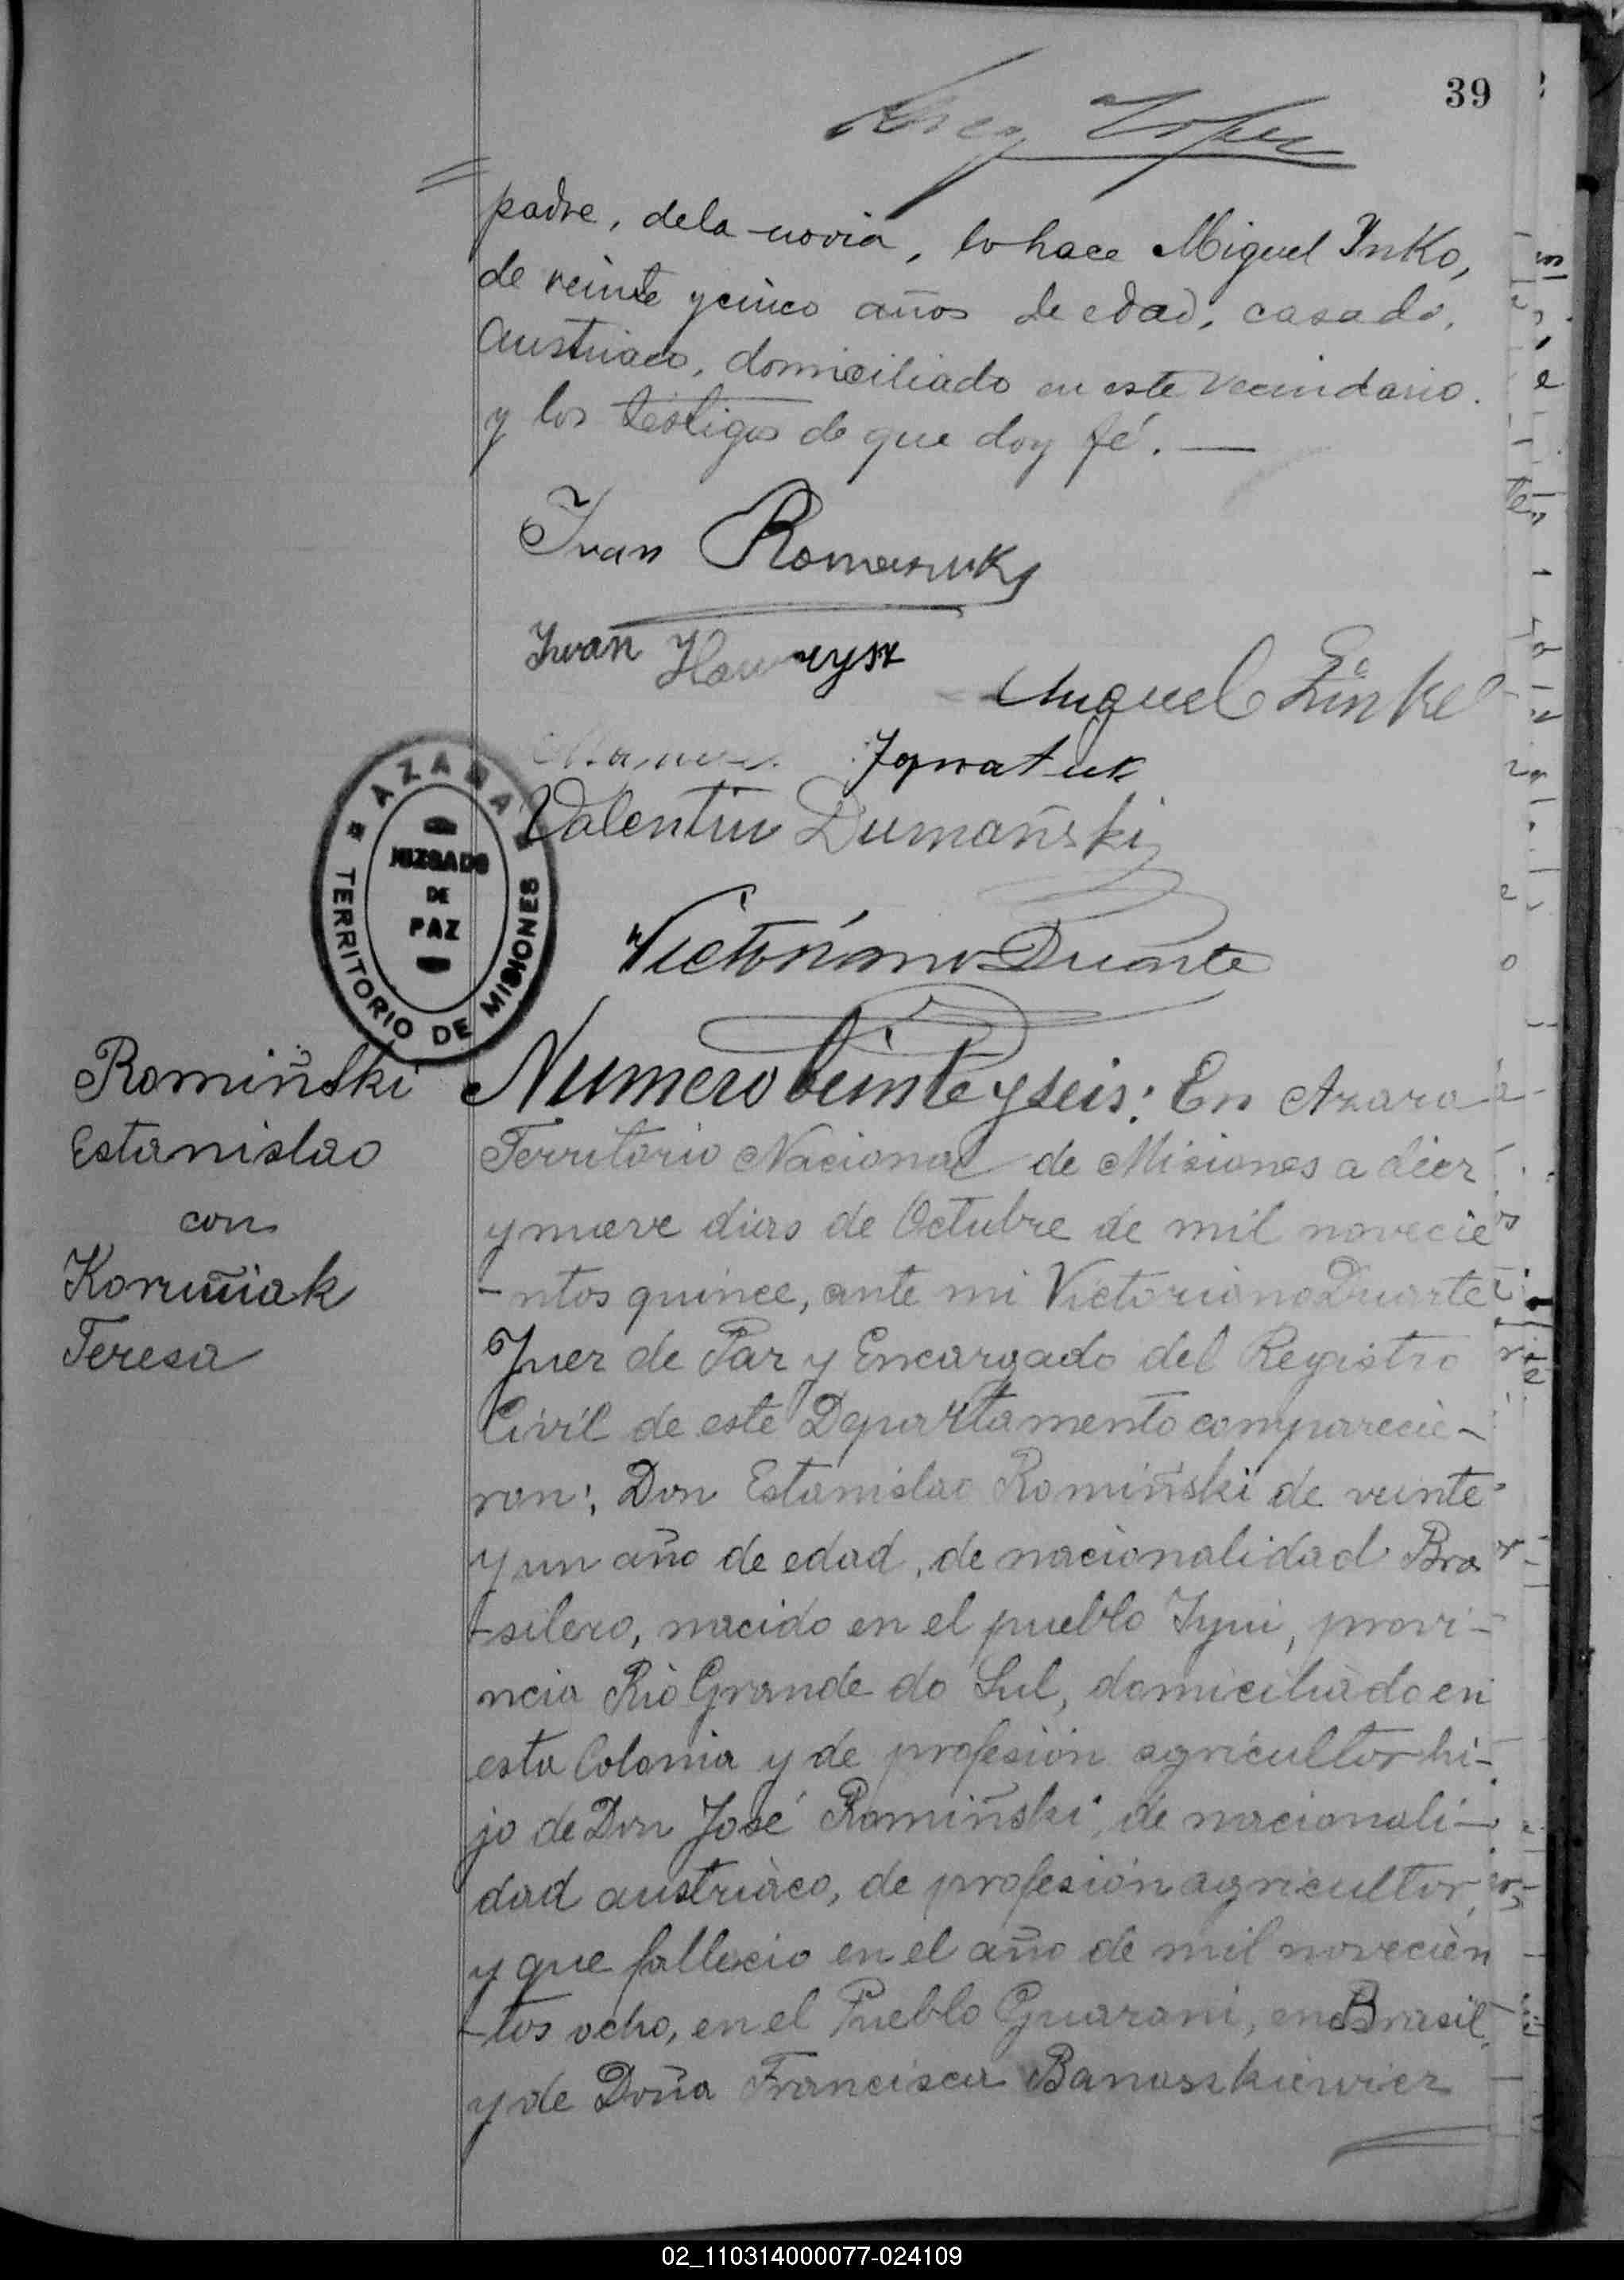 39
padre, dela novia, lo hace Miguel Inko,
de veinte y cinco años de edad, casado,
Austriaco, domiciliado en este vecindario.
y los testigos de que doy fé. —
Ivan Romaniuk
Iwan
Miguel
Ignatiuk
Valentin Dumański
Victoriano Duarte
AZARA
JUZGADO
DE
PAZ
TERRITORIO DE MISIONES
Romiñski
Estanislao
con
Koruñiak
Teresa
Numero veinte y seis: En Azara
Territorio Nacional de Misiones a diez
y nueve dias de Octubre de mil novecie
-ntos quince, ante mi Victoriano Duarte
Juez de Paz y Encargado del Registro
Civil de este Departamento comparecie-
ron: Don Estanislao Romiñski de veinte
y un año de edad, de nacionalidad Bra
-silero, nacido en el pueblo Iyui, provi-
ncia Rio Grande do Sul, domiciliado en
esta Colonia y de profesión agricultor hi-
jo de Don José Romiñski, de nacionali-
dad austriaco, de profesión agricultor,
y que fallecio en el año de mil novecien
-tos ocho, en el Pueblo Guarani, en Brasil,
y de Doña Francisca Banaszkiewicz
02_110314000077-024109